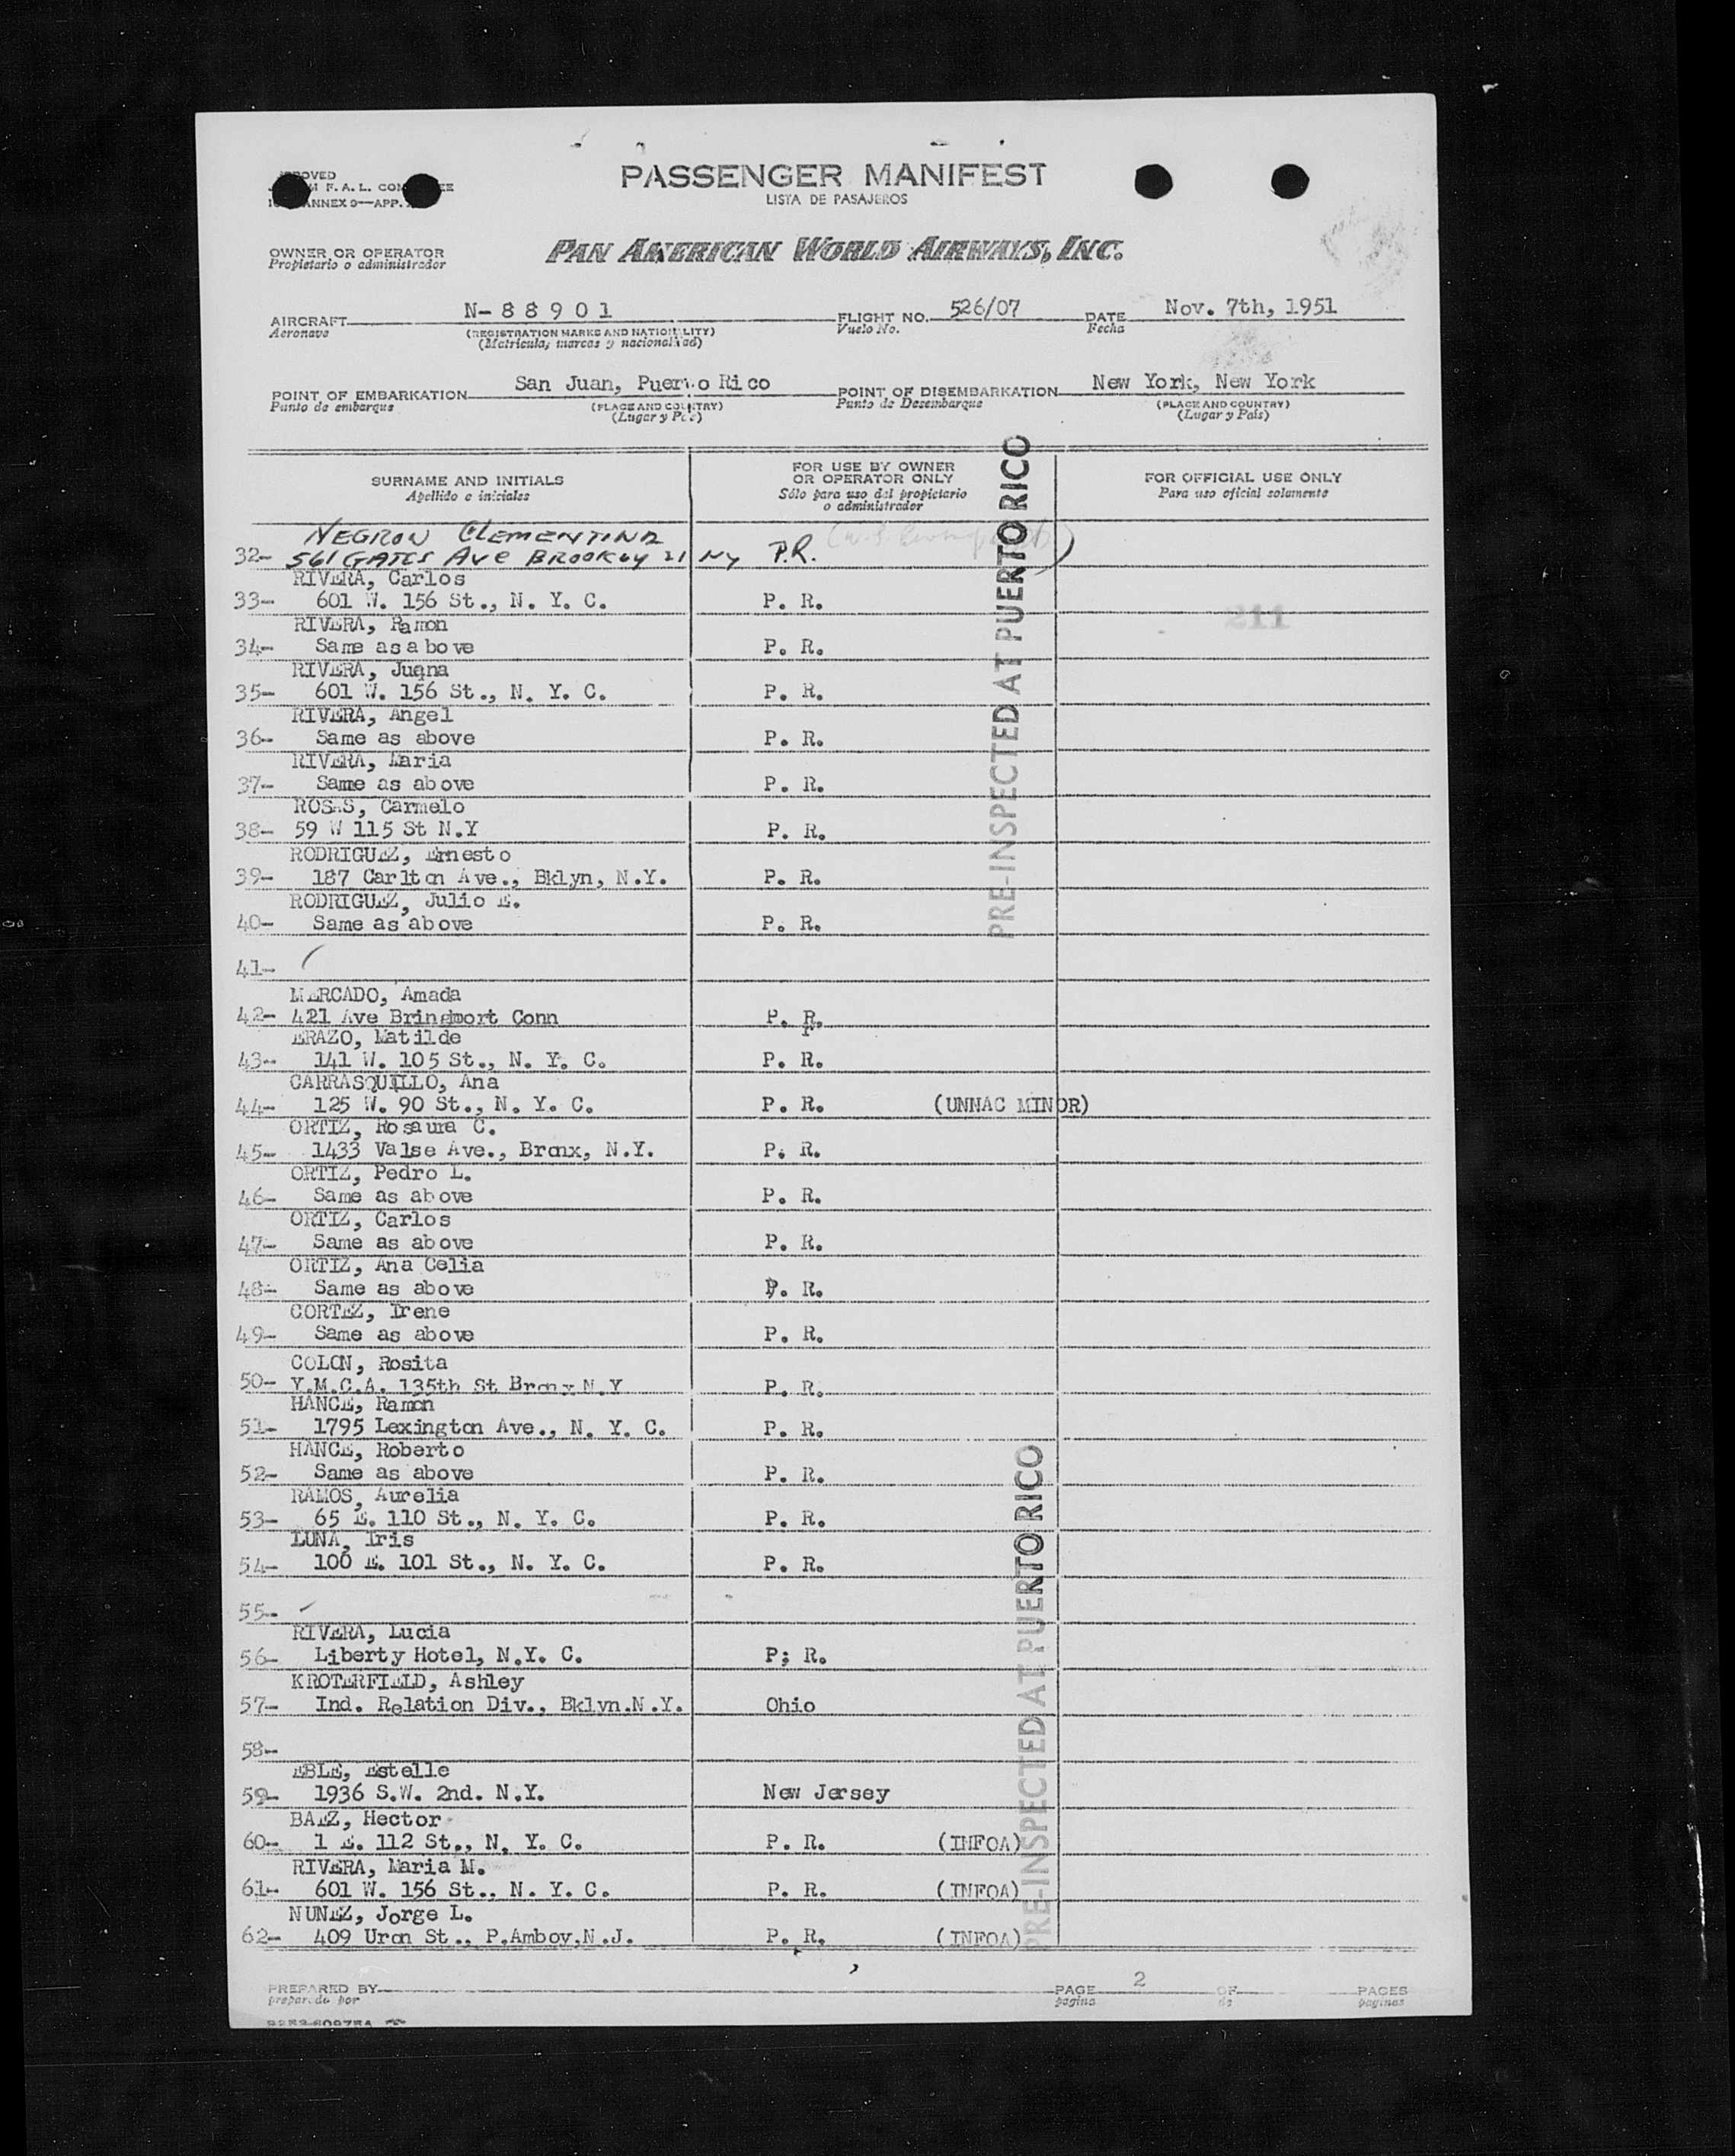 PASSENGER MANIFEST
LISTA DE PASAJEROS
OWNER OR OPERATOR
Propietario o administrador
PAN AMERICAN WORLD AIRWAYS, INC.
AIRCRAFT N-88901 FLIGHT NO. 526/07 DATE Nov. 7th, 1951
Aeronave (REGISTRATION MARKS AND NATIONALITY) Vuelo No. Fecha
(Matricula, marcas y nacionalidad)
POINT OF EMBARKATION San Juan, Puerto Rico POINT OF DISEMBARKATION New York, New York
Punto de embarque (PLACE AND COUNTRY) Punto de Desembarque (PLACE AND COUNTRY)
(Lugar y País) (Lugar y País)
SURNAME AND INITIALS FOR USE BY OWNER OR OPERATOR ONLY FOR OFFICIAL USE ONLY
Apellido e iniciales Sólo para uso del propietario o administrador Para uso oficial solamente
NEGRON CLEMENTINA
32- 561 GATES AVE BROOKLY 21 NY P.R.
RIVERA, Carlos
33- 601 W. 156 St., N. Y. C. P. R.
211
RIVERA, Ramon
34- Same as above P. R.
RIVERA, Juana
35- 601 W. 156 St., N. Y. C. P. R.
RIVERA, Angel
36- Same as above P. R.
RIVERA, Maria
37- Same as above P. R.
ROSAS, Carmelo
38- 59 W 115 St N.Y P. R.
RODRIGUEZ, Ernesto
39- 187 Carlton Ave., Bklyn, N.Y. P. R.
RODRIGUEZ, Julio E.
40- Same as above P. R.
PRE-INSPECTED AT PUERTO RICO
41-
MERCADO, Amada
42- 421 Ave Bringmort Conn P. R.
ERAZO, Matilde
43- 141 W. 105 St., N. Y. C. P. R.
CARRASQUILLO, Ana
44- 125 W. 90 St., N. Y. C. P. R. (UNNAC MINOR)
ORTIZ, Rosaura C.
45- 1433 Valse Ave., Bronx, N.Y. P. R.
ORTIZ, Pedro L.
46- Same as above P. R.
ORTIZ, Carlos
47- Same as above P. R.
ORTIZ, Ana Celia
48- Same as above P. R.
CORTEZ, Irene
49- Same as above P. R.
COLON, Rosita
50- Y.M.C.A. 135th St Bronx N.Y P. R.
HANCE, Ramon
51- 1795 Lexington Ave., N. Y. C. P. R.
HANCE, Roberto
52- Same as above P. R.
RAMOS, Aurelia
53- 65 E. 110 St., N. Y. C. P. R.
LUNA, Iris
54- 100 E. 101 St., N. Y. C. P. R.
55-
RIVERA, Lucia
56- Liberty Hotel, N.Y. C. P; R.
KROTERFIELD, Ashley
57- Ind. Relation Div., Bklyn.N.Y. Ohio
58-
EBLE, Estelle
59- 1936 S.W. 2nd. N.Y. New Jersey
BAEZ, Hector
60- 1 E. 112 St., N. Y. C. P. R. (INFOA)
RIVERA, Maria M.
61- 601 W. 156 St., N. Y. C. P. R. (INFOA)
NUNEZ, Jorge L.
62- 409 Uron St., P.Amboy,N.J. P. R. (INFOA)
PRE-INSPECTED AT PUERTO RICO
PREPARED BY PAGE 2 OF PAGES
preparado por pagina de paginas